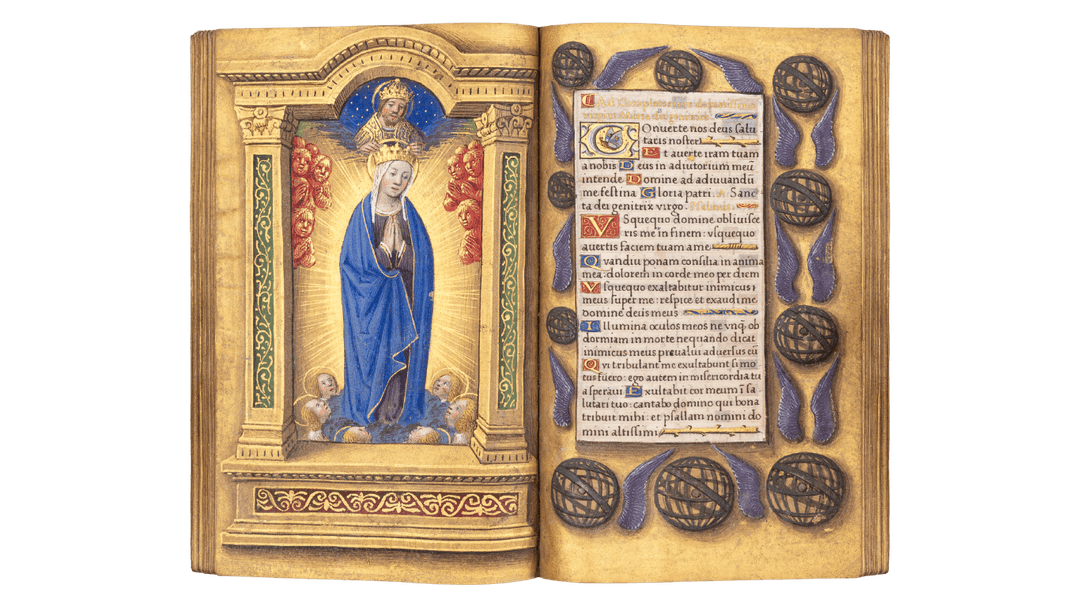 Ad Completorium
Onuerte nos deus salu
taris noster
Et auerte iram tuam
a nobis Deus in adiutorium meū
intende Domine ad adiuuandū
me festina Gloria patri Sanc
ta dei genitrix virgo. Psalmus
VSquequo domine obliuisce
ris me in finem: vsquequo
auertis faciem tuam a me
Quandiu ponam consilia in anima
mea: dolorem in corde meo per diem
Vsquequo exaltabitur inimicus
meus super me: respice et exaudi me
domine deus meus
Illumina oculos meos ne vnq̄ ob
dormiam in morte nequando dicat
inimicus meus preualui aduersus eū
Qui tribulant me exultabunt si mo
tus fuero: ego autem in misericordia tu
a speraui Exultabit cor meum ī sa
lutari tuo: cantabo domino qui bona
tribuit mihi: et psallam nomini do
mini altissimi